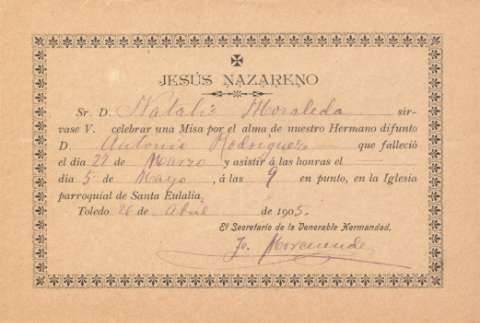 JESÚS NAZARENO
Sr. D. Natalio Moraleda sir-
vase V. celebrar una Misa por el alma de nuestro Hermano difunto
D. Antonio Rodriguez que falleció
el dia 22 de Marzo y asistir á las honras el
dia 5 de Mayo, á las 9 en punto, en la Iglesia
parroquial de Santa Eulalia.
Toledo 26 de Abril de 1905.
El Secretario de la Venerable Hermandad.